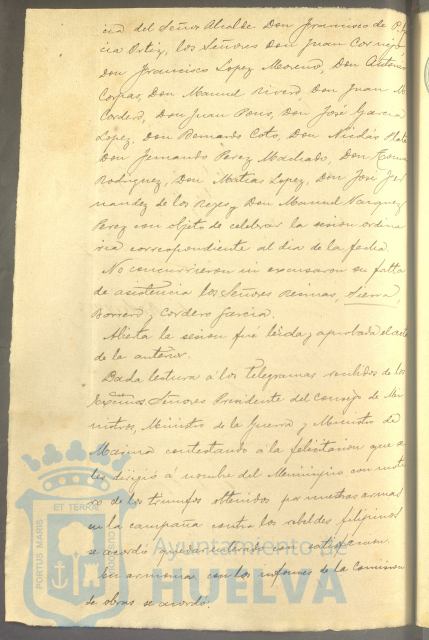 cia del Señor Alcalde Don Francisco de P. G
cia Ortiz, los Señores Don Juan Cornejo
Don Francisco Lopez Moreno, Don Antonio
Corpas, Don Manuel Rivero Don Juan M.
Cordero, Don Juan Pons, Don José Garcia
Lopez, Don Bernardo Coto, Don Nicolás
Don Fernando Perez Machado, Don
Rodriguez, Don Matias Lopez, Don José Fer
nandez de los Reyes y Don Manuel Vazquez
Perez con objeto de celebrar la sesion ordina
ria correspondiente al dia de la fecha.
No concurrieron ni excusaron su falta
de asistencia los Señores Sierra,
Borrero y Cordero Garcia.
Abierta la sesion fué leida y aprobada el acta
de la anterior.
Dada lectura á los telegramas recibidos de los
Excmos. Señores Presidente del Consejo de Mi
nistros, Ministro de la Guerra y Ministro de
Marina contestando á la felicitacion que se
les dirigió á nombre del Municipio con moti
vo de los triunfos obtenidos por nuestras armas
en la campaña contra los rebeldes filipinos
se acordó quedar enterado con satisfaccion.
En armonia con los informes de la Comision
de obras se acordó:
PORTUS MARIS ET TERRAE CUSTODIA
Ayuntamiento de
HUELVA